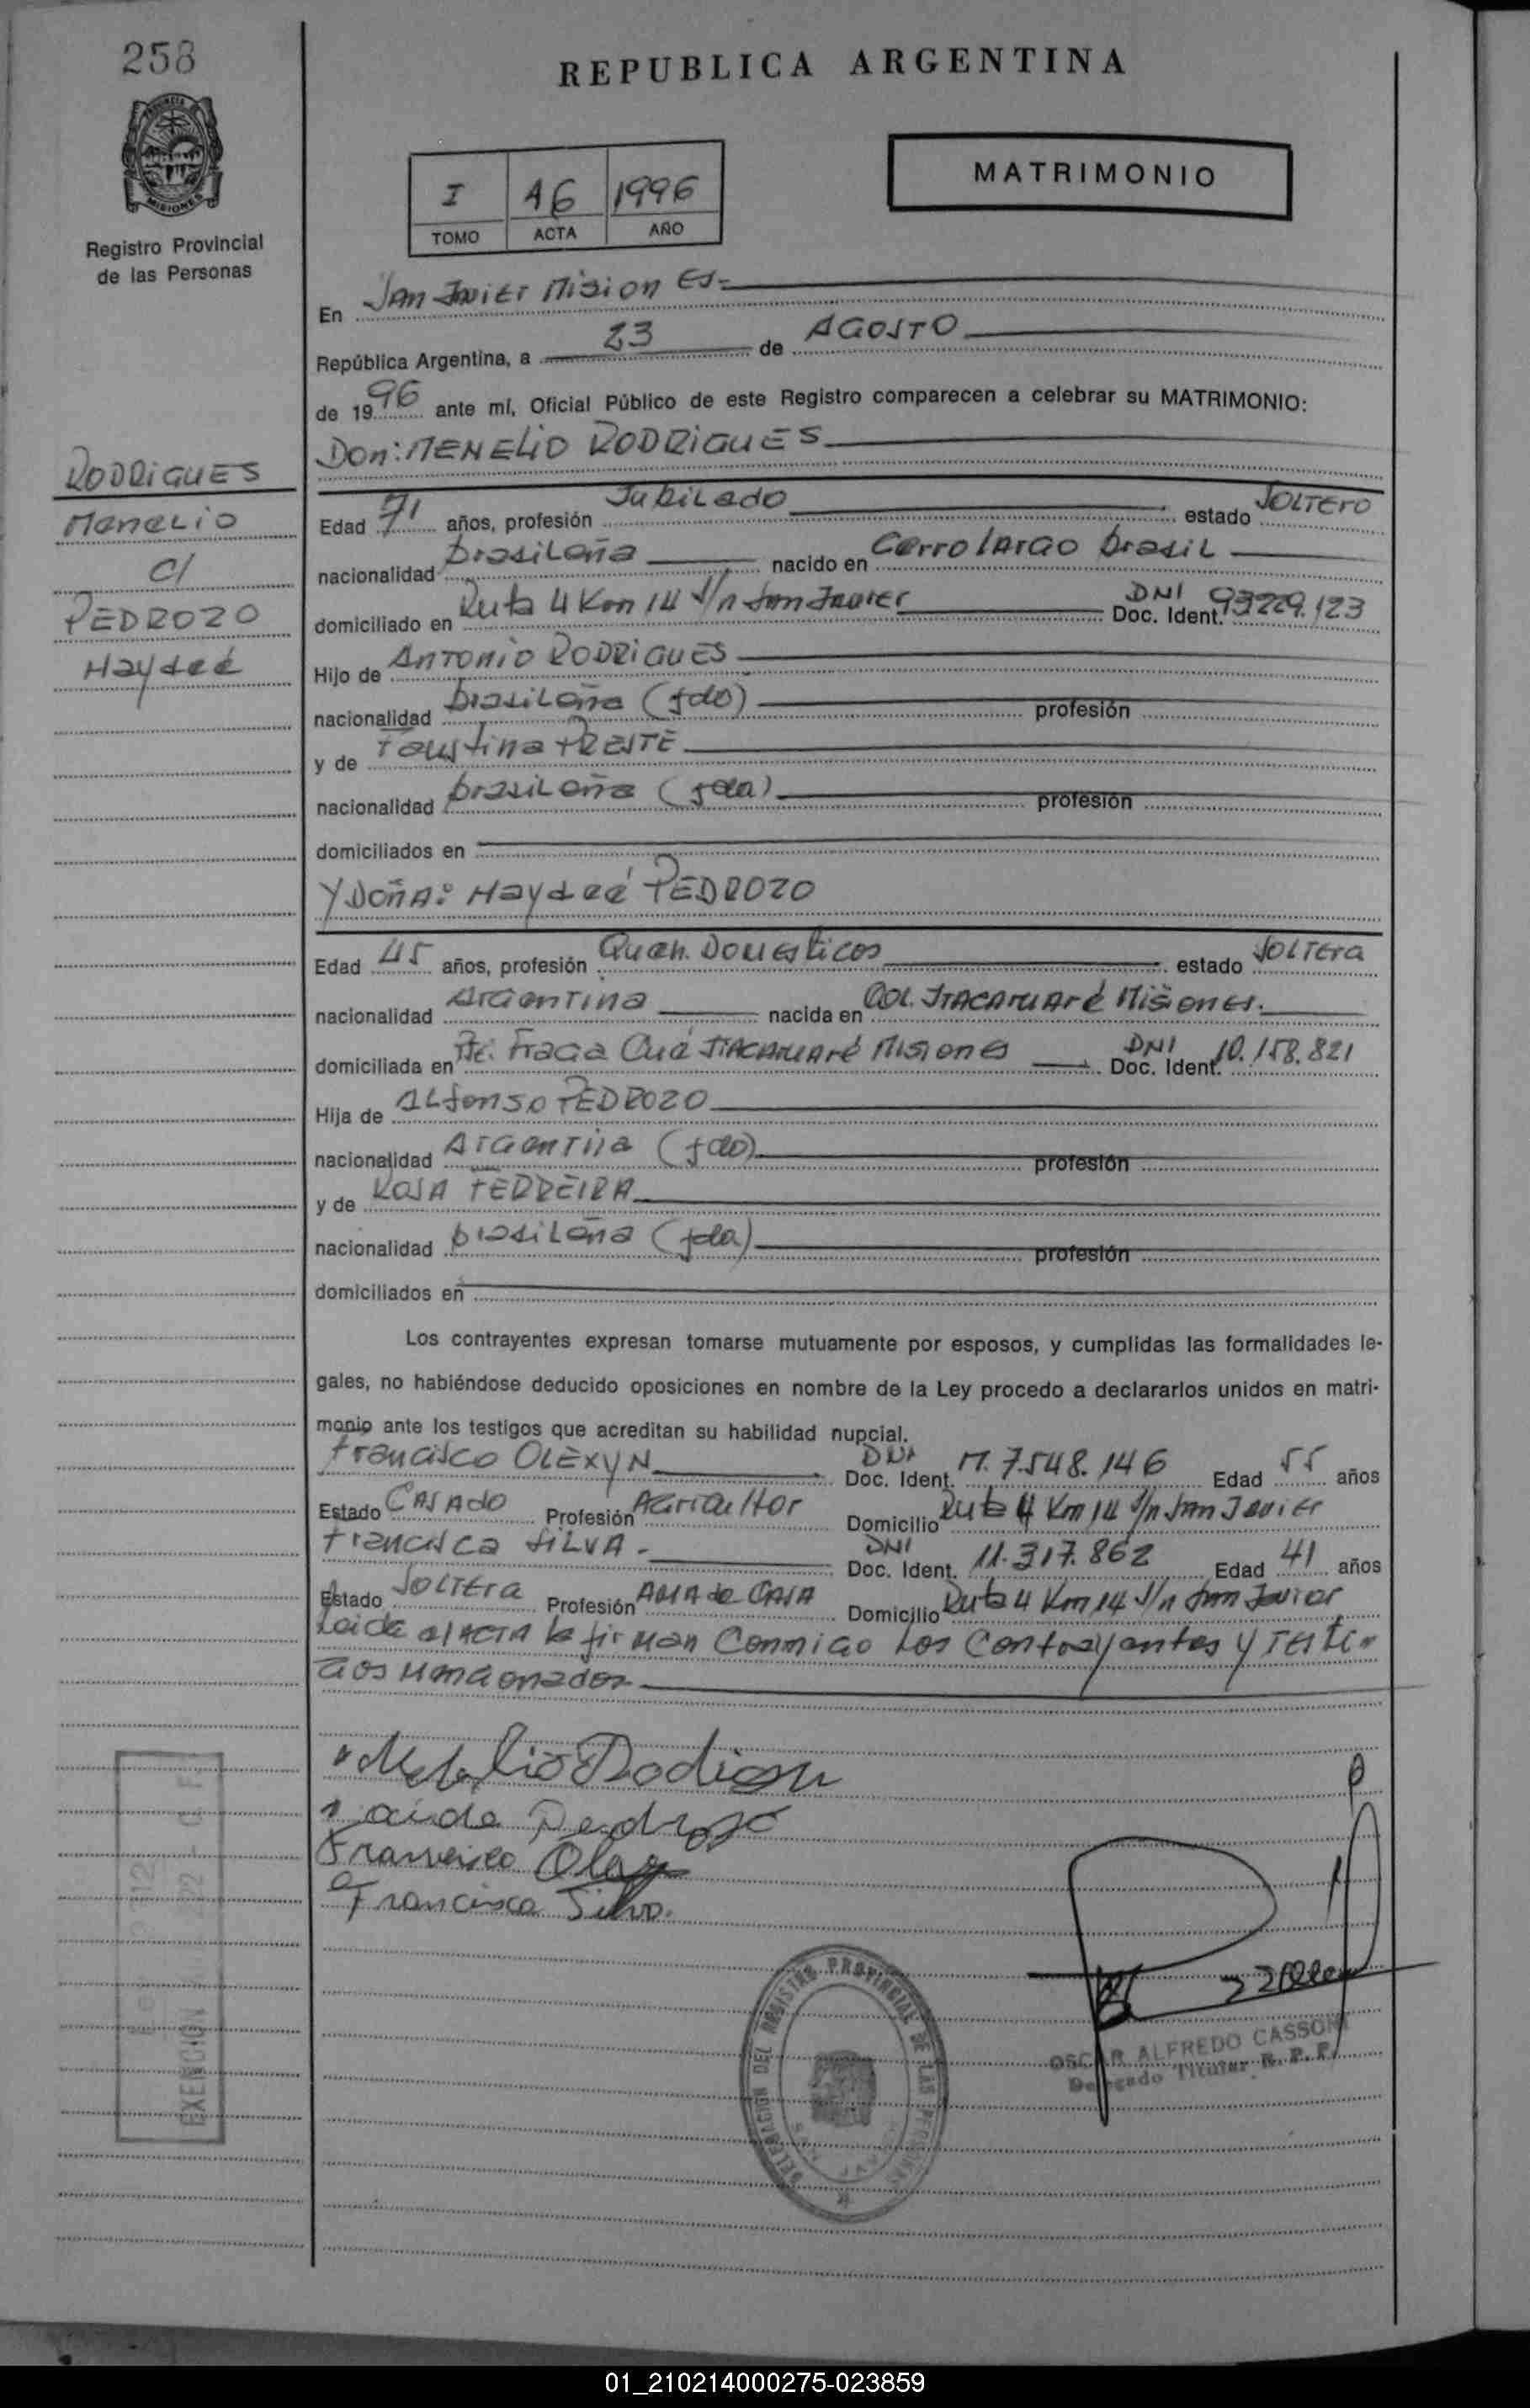 258
REPUBLICA ARGENTINA
PROVINCIA DE
MISIONES
Registro Provincial
de las Personas
I 46 1996
TOMO ACTA AÑO
MATRIMONIO
En San Javier Misiones-
República Argentina, a 23 de AGOSTO
de 1996 ante mí, Oficial Público de este Registro comparecen a celebrar su MATRIMONIO:
Don: MENELIO RODRIGUES
RODRIGUES
Menelio
c/
PEDROZO
Haydeé
Edad 71 años, profesión Jubilado estado SOLTERO
nacionalidad brasileña nacido en Cerro largo brasil
domiciliado en Ruta 4 Km 14 S/n San Javier DNI Doc. Ident. 93229.123
Hijo de ANTONIO RODRIGUES
nacionalidad brasileña (fdo) profesión
y de Faustina PRESTE
nacionalidad brasileña (fda) profesión
domiciliados en
Y DOÑA: Haydeé PEDROZO
Edad 45 años, profesión Queh. Domesticos estado SOLTERA
nacionalidad Argentina nacida en Col. ITACARUARé Misiones.
domiciliada en Pte. Fraga Cué ITACARUARé Misiones DNI Doc. Ident. 10.158.821
Hija de Alfonso PEDROZO
nacionalidad Argentina (fdo) profesión
y de ROSA FERREIRA
nacionalidad brasileña (fda) profesión
domiciliados en
Los contrayentes expresan tomarse mutuamente por esposos, y cumplidas las formalidades le-
gales, no habiéndose deducido oposiciones en nombre de la Ley procedo a declararlos unidos en matri-
monio ante los testigos que acreditan su habilidad nupcial.
Francisco OLEXYN DNI Doc. Ident. M. 7.548.146 Edad 55 años
Estado CASADO Profesión Agricultor Domicilio Ruta 4 Km 14 S/n San Javier
Francisca SILVA.- DNI Doc. Ident. 11.317.862 Edad 41 años
Estado SOLTERA Profesión AMA de CASA Domicilio Ruta 4 Km 14 S/n San Javier
Leida el ACTA la firman Conmigo Los Contrayentes y Testi-
gos mencionados
Pedrozo
Francisco
Francisca Silva.
DELEGACION DEL REGISTRO PROVINCIAL DE LAS PERSONAS
OSCAR ALFREDO CASSONI
Delegado Titular R. P. P.
EXENCION
01_210214000275-023859